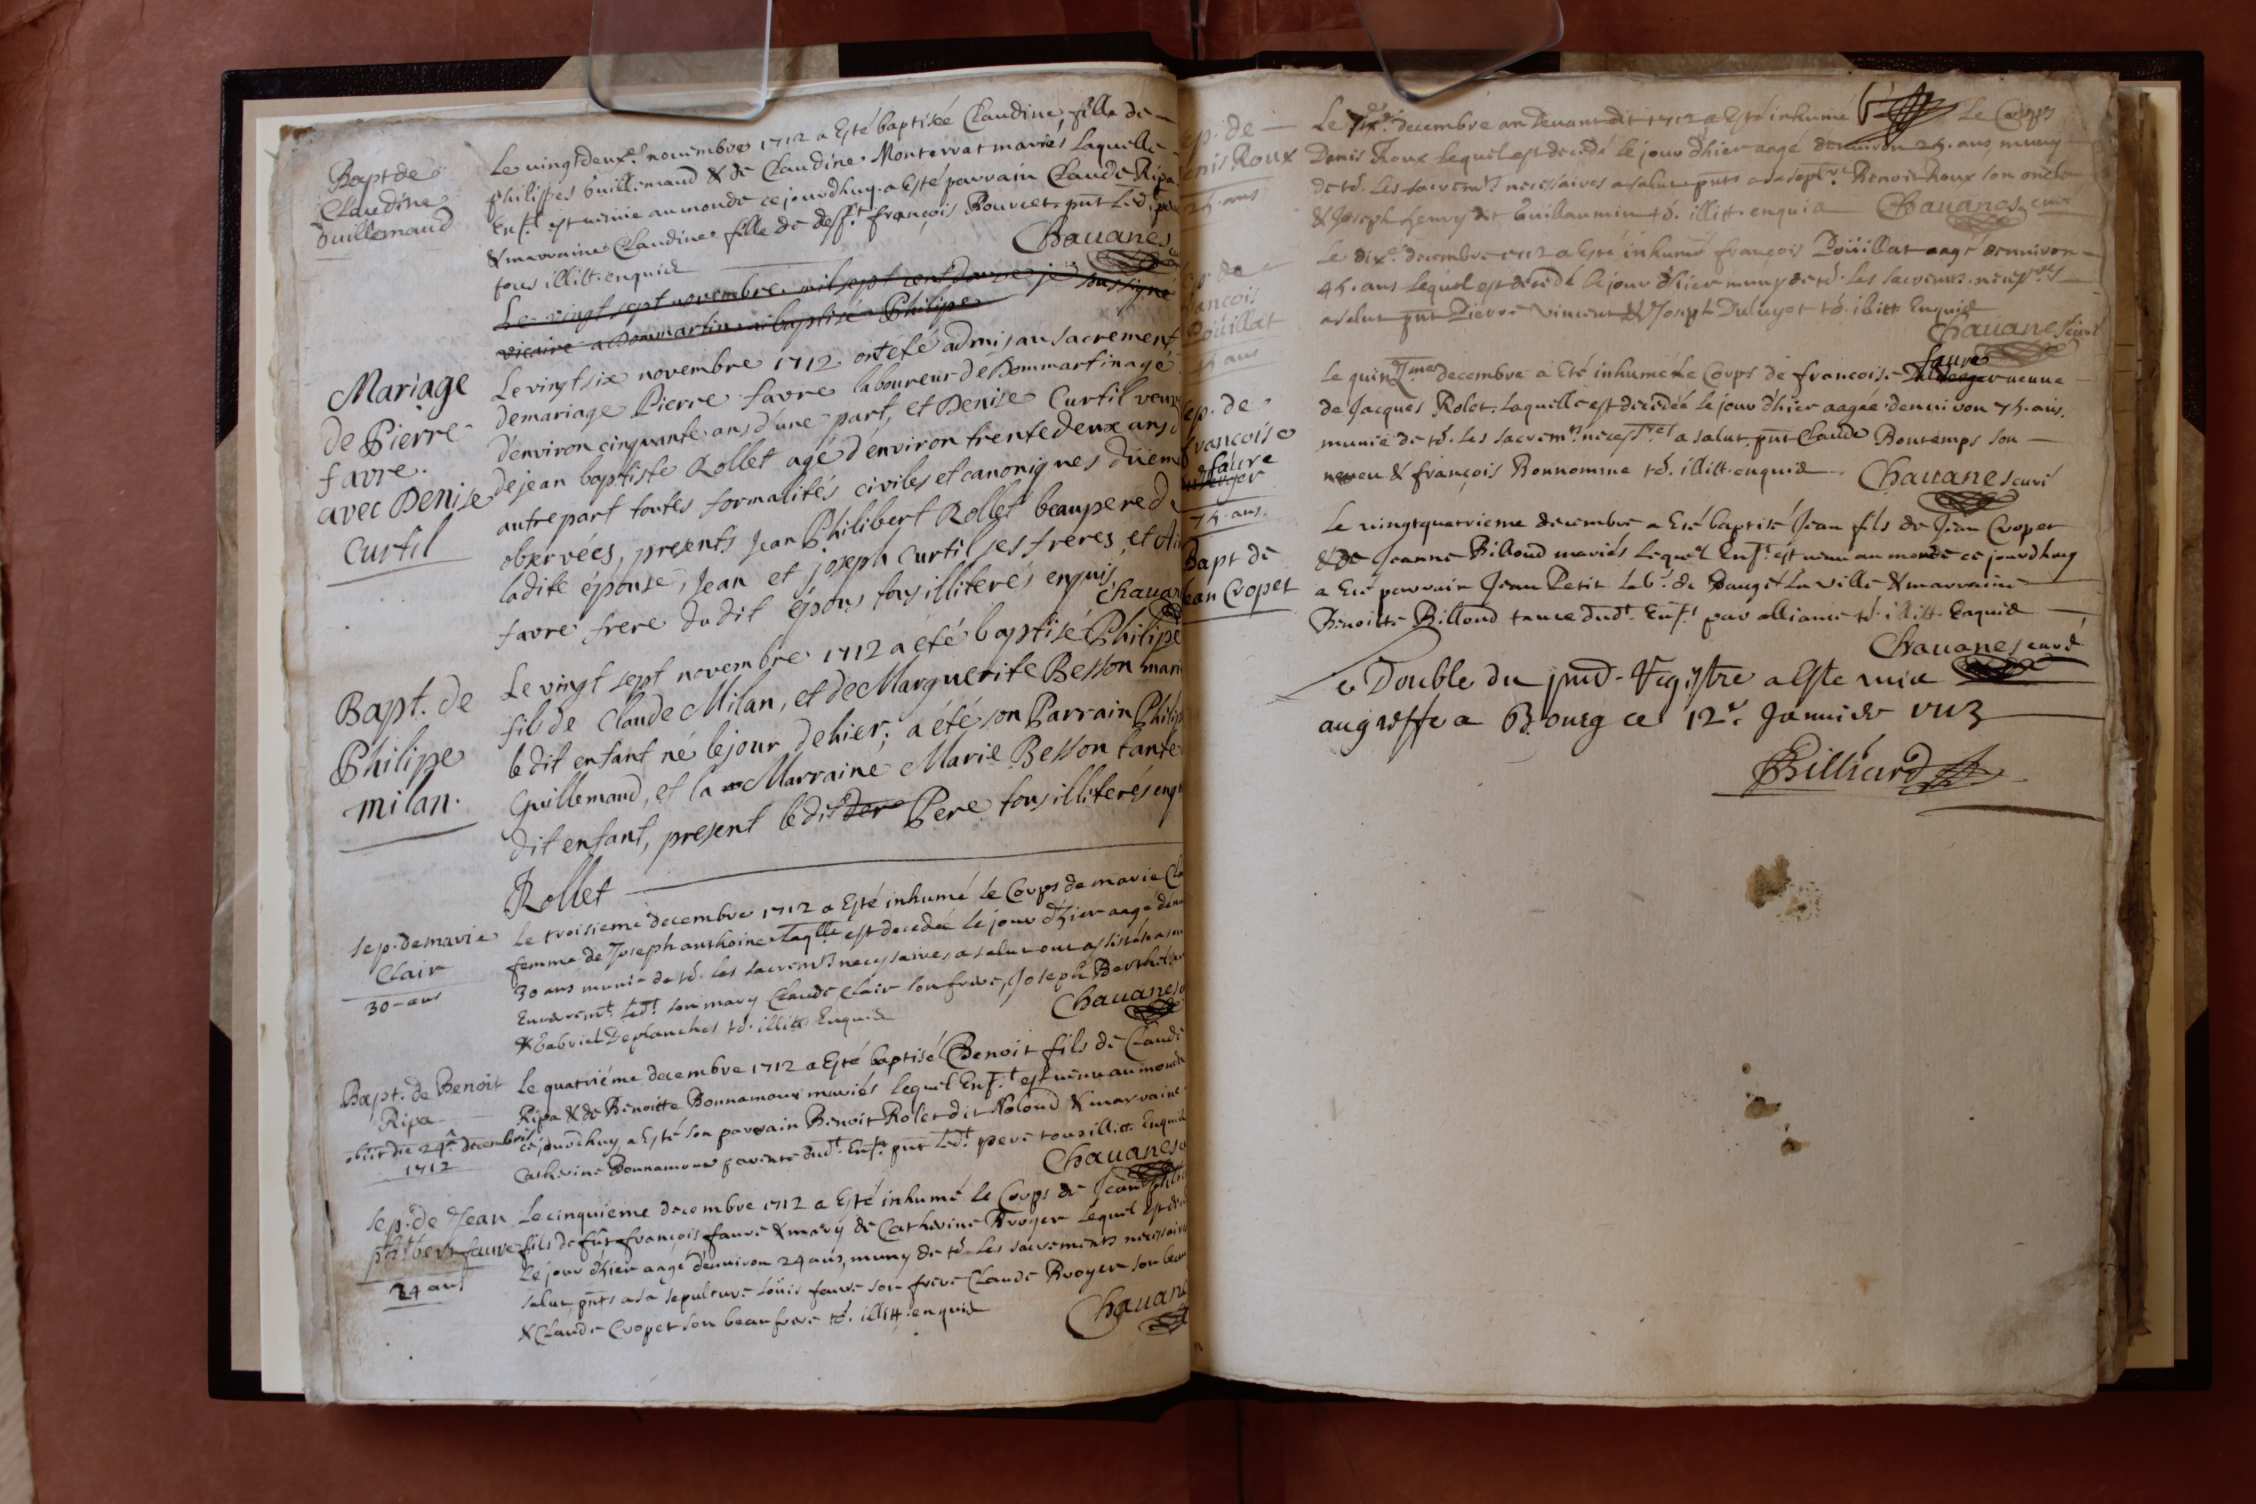 Bapt de
Claudine
Guillemaud
Le vingtdeuxe. novembre 1712 a Esté baptisée Claudine, fille de
philippes Guillemaud & de Claudine Monterrat mariés Laquelle
Enft. est venüe au monde ce jourdhuy. a Esté parrain Claude Ripa
& marraine Claudine fille de deff.t françois Bouvier. pnt Led. pe
tous illitt. enquis
Chauanes
Le vingt sept novembre mil sept cent douze je soussigné
vicaire a Dommartin ai baptisé Philipe
Mariage
De Pierre
favre.
avec Denise
Curtil
Le vingt six novembre 1712. ont été admis au sacrement
de mariage Pierre favre laboureur de Dommartin agé
d'environ cinquante ans d'une part, et Denise Curtil veuv
de jean baptiste Rollet agé d'environ trente deux ans d
autre part toutes formalités civiles et canoniques düem
observées, presents Jean Philibert Rollet beaupere d
ladite épouse, Jean et joseph Curtil ses freres, et
favre frere dudit épous tous illiterés enquis
Chauan
Bapt. de
Philipe
milan.
Le vingt sept novembre 1712 a été baptisé Philipe
fils de Claude Milan, et de Marguerite Besson mari
le dit enfant né le jour dehier; a été son Parrain Philip
Guillemaud, et la Marraine Marie Besson tante
dit enfant, present le dit Pere tous illiterés enqu
Rollet
Sep. de marie
Clair
30 ans
Le troisieme decembre 1712 a Esté inhumé le Corps de marie Cla
femme de Joseph anthoine Laqlle est decedée le jour d'hier aagé den
30 ans munie de ts. les sacremts necessaires a salut ont assisté a son
Enterremt. Ledt. son mary Claude Clair son frere, Joseph Berthela
& Gabriel Desplanches ts. illitt. Enquis
Chauanes
Bapt. de Benoit
Ripa
obiit die 24a decembris
1712
Le quatriéme decembre 1712 a Esté baptisé Benoit fils de Claude
Ripa & de Benoitte Bonnamour mariés lequel Enft. est venu au monde
ce jourdhuy a Esté son parrain Benoit Rolet dit Noloud & marraine
Catherine Bonnamour parente dudt. Enft. pnt Ledt. pere tous illitt. Enquis
Chauanes
Sep. de Jean
philbert faure
24 ans
Le cinquiéme decembre 1712 a Esté inhumé le Corps de Jean philb
fils de fût françois faure & mary de Catherine Broyer Lequel Est de
le jour d'hier aagé d'environ 24 ans, muny de ts. Les sacrements necessaire
salut, pnts a sa sepulture Loüis faure son frere Claude Broyer son beau
& Claude Cropet son beau frere ts. illitt. enquis
Chauane
ep. de
enis Roux
25. ans
Le decembre an devant dit 1712 a Esté inhumé Le Corps
Denis Roux Lequel est decedé le jour d'hier aagé denviron 25. ans, muny
de ts. Les sacremts necessaires a salut pnts a sa sepltre. Benoit Roux son oncle
& Joseph henry & Guillaumin ts. illitt. enquis Chauanes curé
ep. de
francois
Poüillat
45 ans
Le dixe. decembre 1712 a Esté inhumé françois Poüillat aagé denniron
45. ans Lequel est decedé le jour d'hier muny de ts. les sacremts. necessres
a salut pnt Pierre Vincent & Joseph Duluyot ts. illitt Enquis
Chauanes curé
Sep. de
françoise
faure
75. ans.
Le quinzme decembre a Eté inhumé le Corps de françoise faure veuve
de Jacques Rolet, Laquelle est decedée le jour d'hier aagée denniron 75. ans.
munie de ts. les sacremts necessres a salut. pnt Claude Bontemps son
neveu & françois Bonnomme ts. illitt. enquis Chauanes curé
Bapt de
Jean Cropet
Le vingtquatrieme decembre a Eté baptisé Jean fils de Jean Cropet
& de Jeanne Billoud mariés Lequel Enft est venu au monde ce jourdhuy
a Eté parrain Jean Petit Labr. de Baugé la ville & marraine
Benoitte Billoud tante dudt. Enft par alliance ts. illitt. Enquis
Chauanes curé
Le Double du pnd. Regystre a Este mis
au greffe a Bourg ce 12e. Januier 1713
Billiard